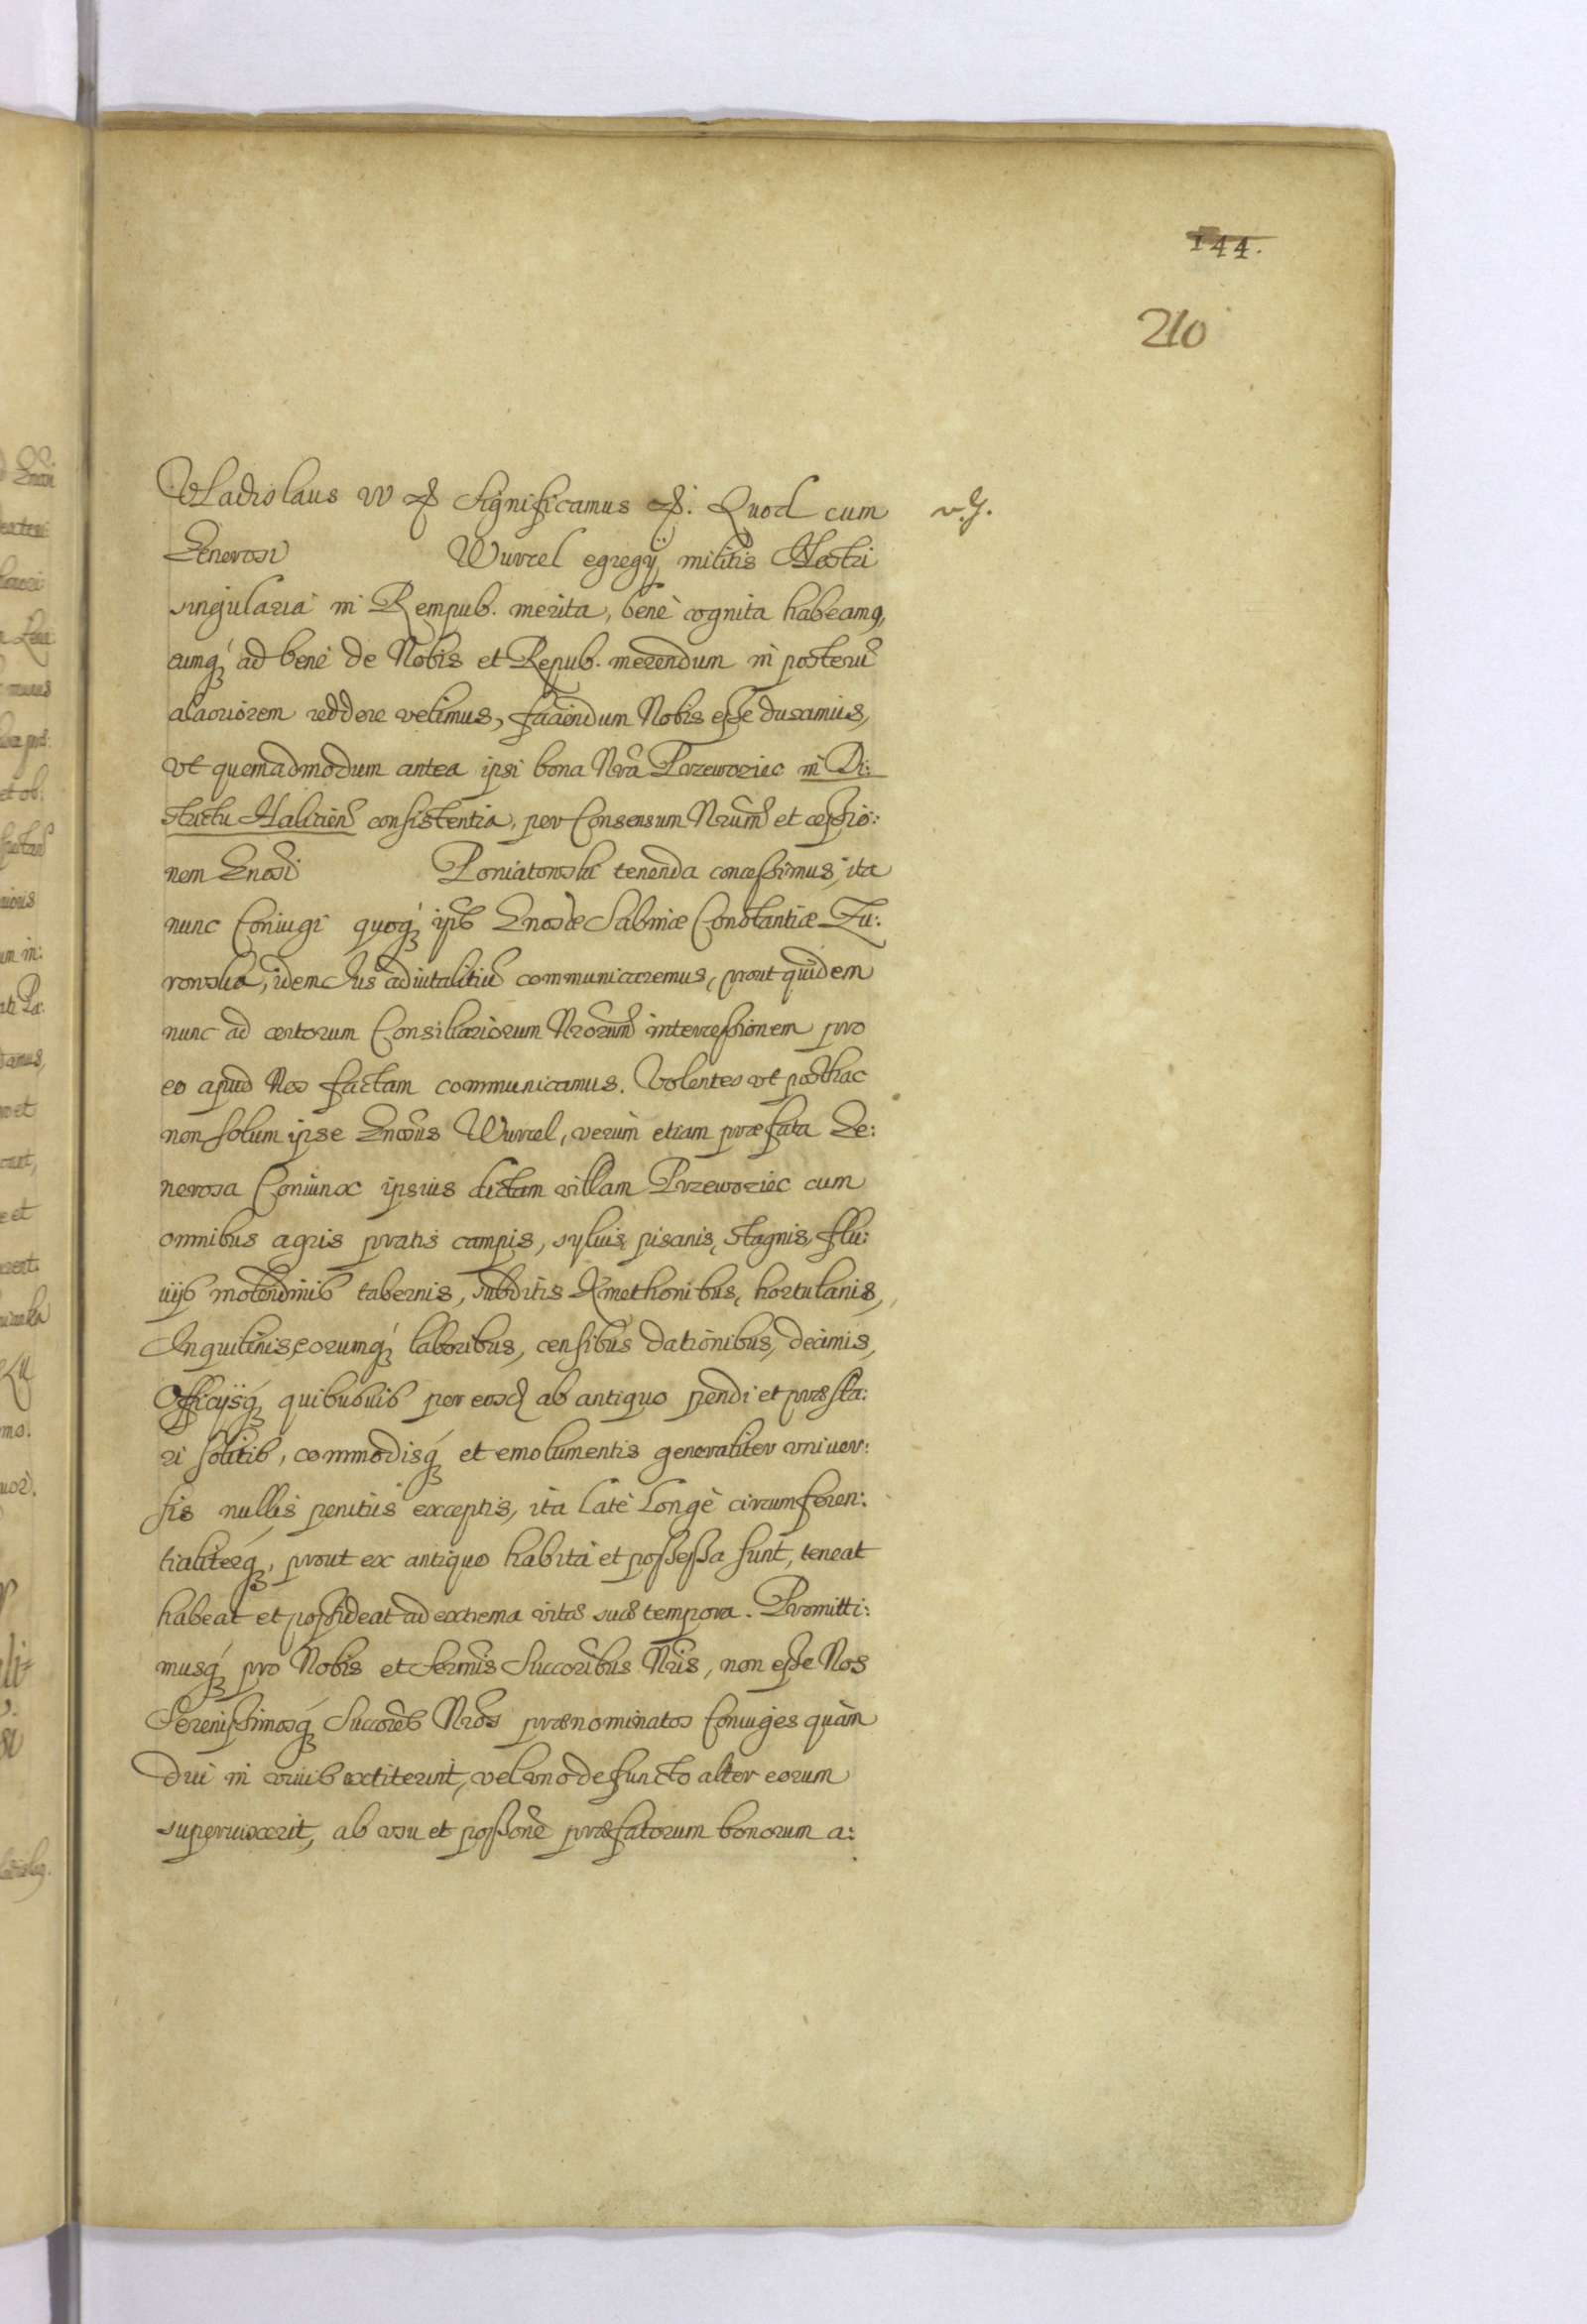 144.
210
Vladislaus IV etc Significamus etc. Quod cum
Generosi Wurcel egregij militis Nostri
singularia in Rempub. merita, benè cognita habeamq,
eumq́ ad benè de Nobis et Repub. merendum in posterū
alacriorem reddere velimus, faciendum Nobis esse duxamius,
vt quemadmodum antea ipsi bona Nrã Przewoziec in Di:
strictu Haliciens consistentia, per Consensum Nrũm et cessio:
nem Gnosi Poniatowski tenenda concessimus, ita
nunc Coniugi quoq́ ipsis Gnosae Sabinae Constantiae Zu:
rowska, idem Ius aduitalitiũ communicaremus, prout quidem
nunc ad certorum Consiliariorum Nrorum intercessionem pro
eo apud Nos factam communicamus. Volentes vt posthac
non solum ipse Gnosus Wurcel, verùm etiam praefata Ge:
nerosa Coniunx ipsius dictam villam Przewoziec cum
omnibus agris pratis campis, syluis, pisanis, stagnis, flu:
uijs molendinis tabernis, subditis Kmethonibus, hortulanis,
Inquilinis, eorumq́ laboribus, censibus dationibus, decimis,
Officijsq́ quibusuis per eosd ab antiquo pendi et praesta:
ri solitis, commodisq́ et emolumentis generaliter vniuer:
sis nullis penitùs exceptis, ita latè longè circumferen:
tialiterq́, prout ex antiquo habita et possessa sunt, teneat
habeat et possideat ad extrema vitae suae tempora. Promitti:
musq́ pro Nobis et Sermis Succoribus Nris, non esse Nos
Serenissimosq́ Succores Nros praenominatos Coniuges quàm
diu in viuis extiterint, vel vno defuncto alter eorum
superuixerit, ab vsu et possone praefatorum bonorum a: